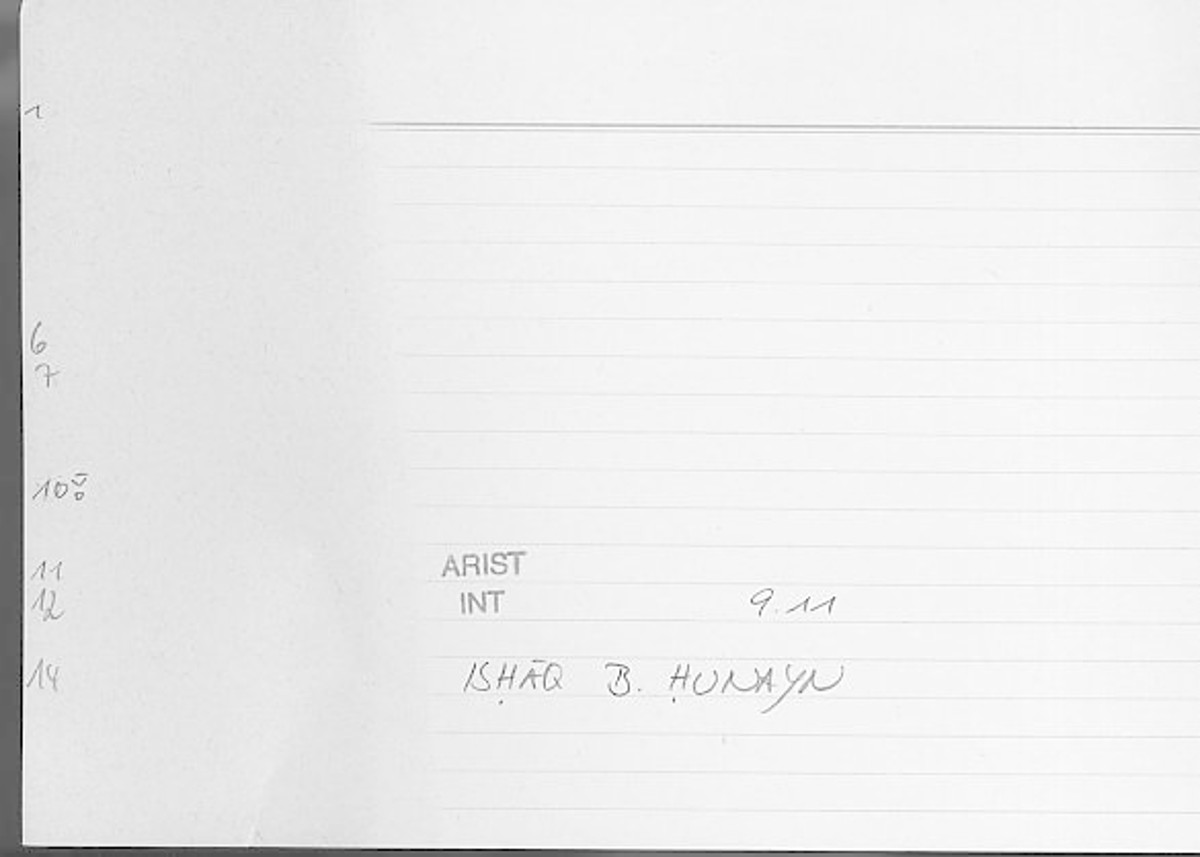 1
6
7
10
11
ARIST
12
INT 9.11
14
ISḤĀQ B. ḤUNAYN